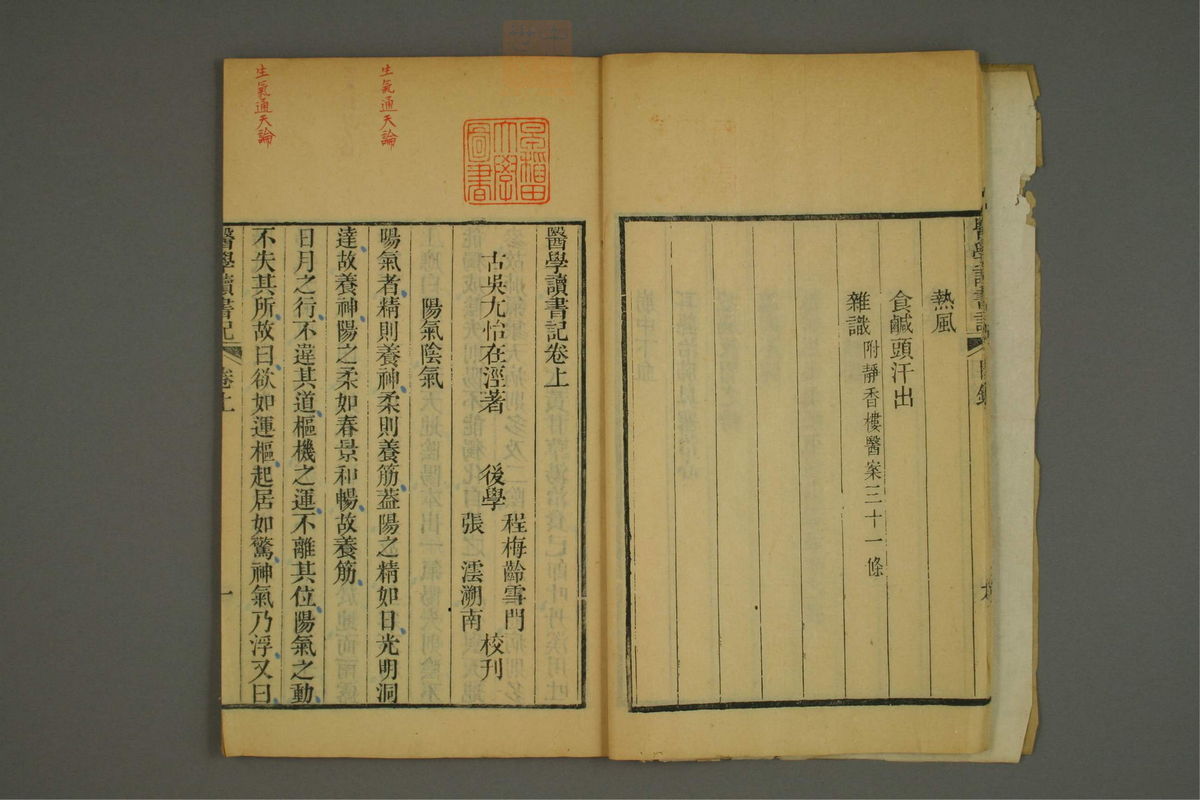 熱風
食鹹頭汗出
雜識附靜香樓醫案三十一條
醫學讀書記
目錄
早稻田大學圖書
醫學讀書記卷上
古吳尤怡在涇著
後學
程梅齡雪門
張澐溯南
校刊
陽氣陰氣
生氣通天論
陽氣者精則養神柔則養筋葢陽之精如日光明洞
達故養神陽之柔如春景和暢故養筋
日月之行不違其道樞機之運不離其位陽氣之動
生氣通天論
不失其所故曰欲如運樞起居如驚神氣乃浮又曰
醫學讀書記
卷上
一